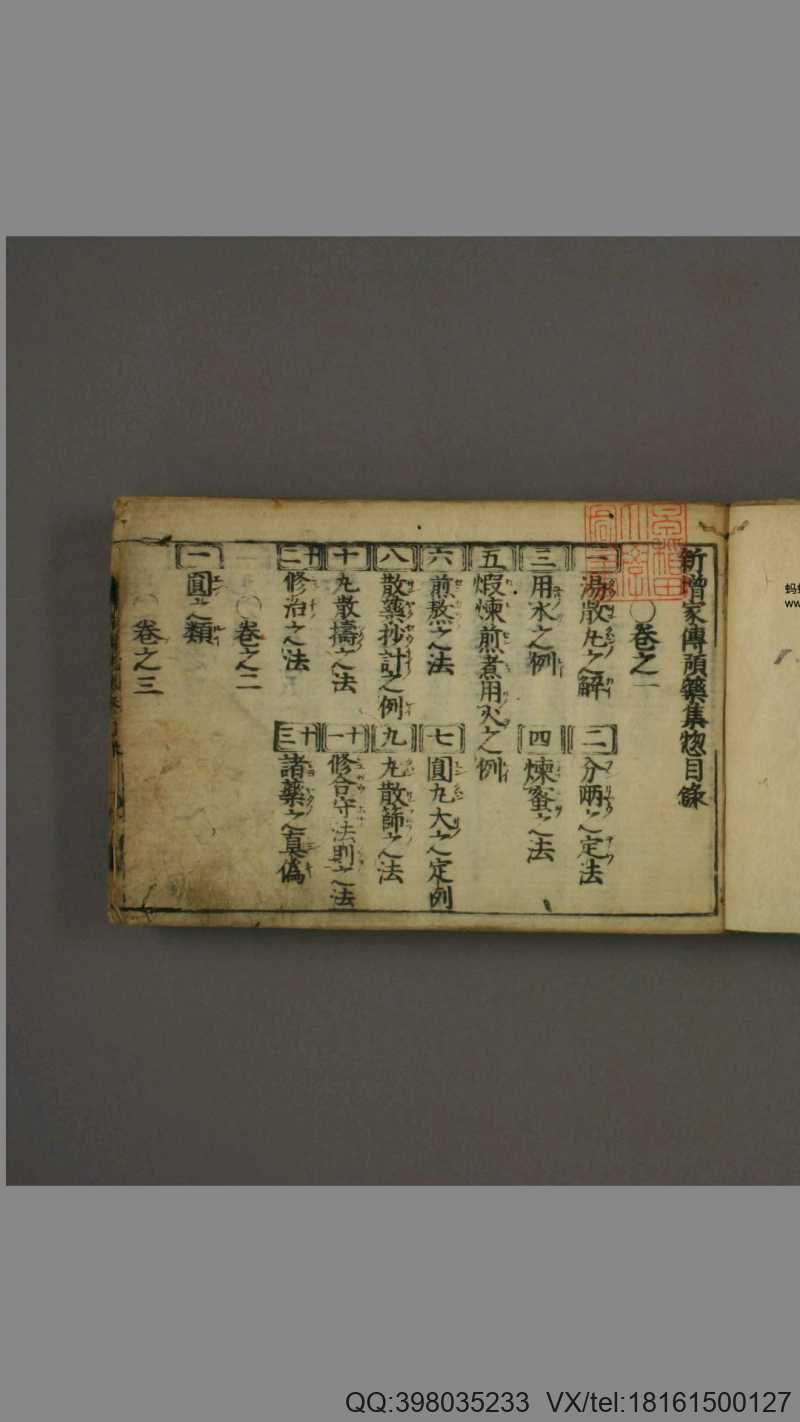 新增家傳預藥集惣目録
〇卷之一
一 湯散丸之解 二 分兩之定法
三 用水之例 四 煉蜜之法
五 煆煉煎煮用火之例
六 煎熬之法 七 圓丸大之定例
八 散藥抄計之例 九 丸散篩之法
十 丸散擣之法 十一 修合守法則之法
十二 修治之法 十三 諸藥之真偽
〇卷之二
一 圓之類
〇卷之三
QQ:398035233 VX/tel:18161500127